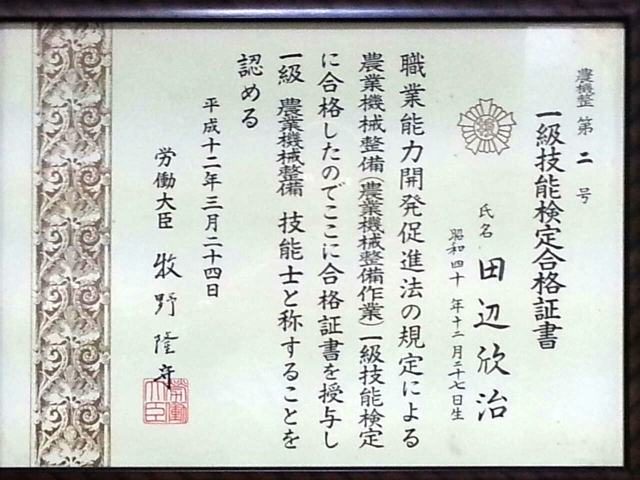 農機整 第 二 号
一級技能検定合格証書
氏名 田辺欣治
昭和四十 年十二月二十七日生
職業能力開発促進法の規定による
農業機械整備(農業機械整備作業)一級技能検定
に合格したのでここに合格証書を授与し
一級 農業機械整備 技能士と称することを
認める
平成十二年三月二十四日
労働大臣 牧野隆守
労働大臣